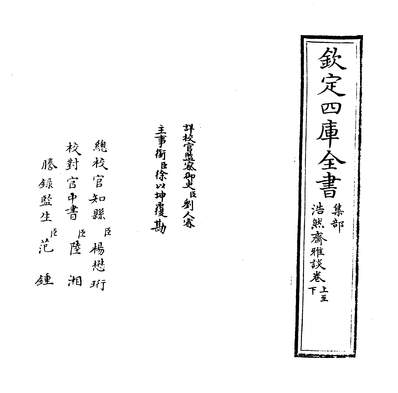 欽定四庫全書
集部
浩然齋雅談卷上至下
詳校官監察御史臣劉人睿
主事銜臣徐以坤覆勘
總校官知縣臣楊懋珩
校對官中書臣陸湘
謄錄監生臣范鍾